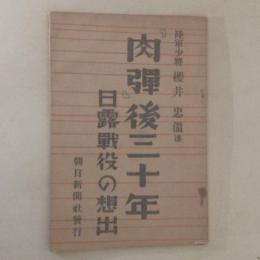 陸軍少將 櫻井 忠溫 述
『肉彈』後三十年
日露戰役の想出
朝日新聞社發行